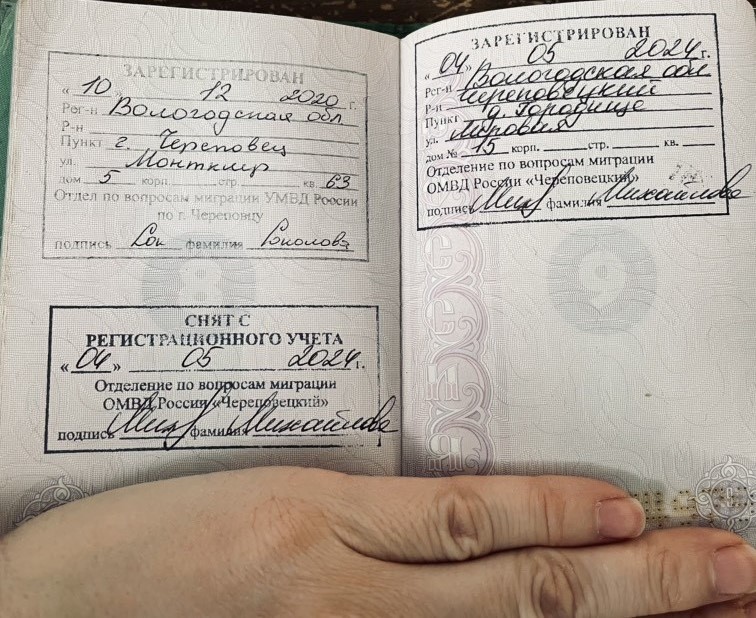 ЗАРЕГИСТРИРОВАН
« 10 » 12 2020 г.
Рег-н Вологодская обл
Р-н
Пункт г. Череповец
ул. Монтклер
дом 5 корп. стр. кв. 63
Отдел по вопросам миграции УМВД России
по г. Череповцу
подпись фамилия Соколова
СНЯТ С
РЕГИСТРАЦИОННОГО УЧЕТА
« 04 » 05 2024 г.
Отделение по вопросам миграции
ОМВД России «Череповецкий»
подпись фамилия Михайлова
8
ЗАРЕГИСТРИРОВАН
« 04 » 05 2024 г.
Рег-н Вологодская обл
Р-н Череповецкий
Пункт д. Городище
ул. Мировая
дом № 15 корп. стр. кв.
Отделение по вопросам миграции
ОМВД России «Череповецкий»
подпись фамилия Михайлова
9